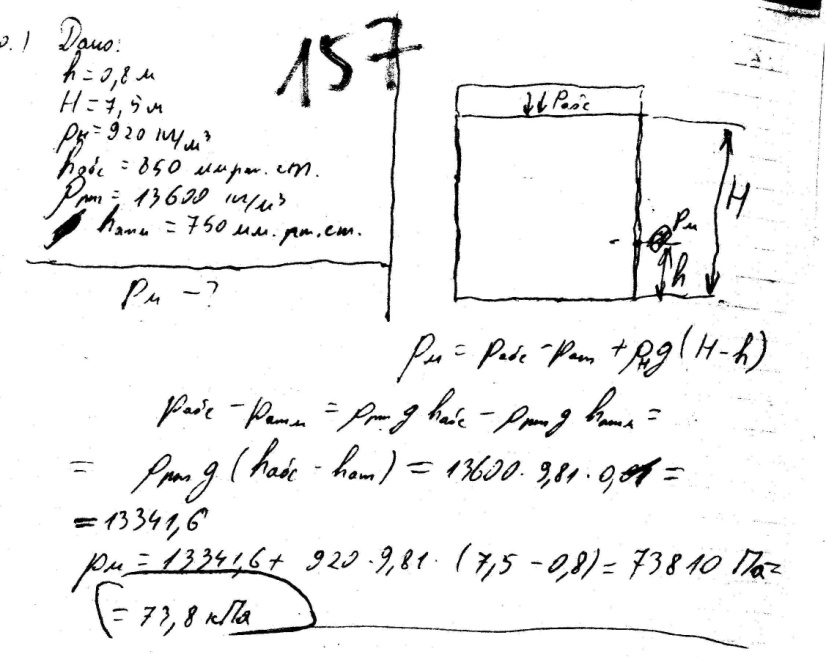 0.) Дано:
157
h = 0,8 м
H = 7,5 м
ρн = 920 кг/м³
hабс = 850 мм рт. ст.
ρрт = 13600 кг/м³
hатм = 750 мм. рт. ст.
Pм - ?
↓↓ Pабс
H
Pм
h
Pм = Pабс - Pат + ρнg(H-h)
Pабс - Pатм = ρрт g hабс - ρрт g hатм =
= ρрт g (hабс - hат) = 13600 · 9,81 · 0,1 =
= 13341,6
Pм = 13341,6 + 920 · 9,81 · (7,5 - 0,8) = 73810 Па =
= 73,8 кПа